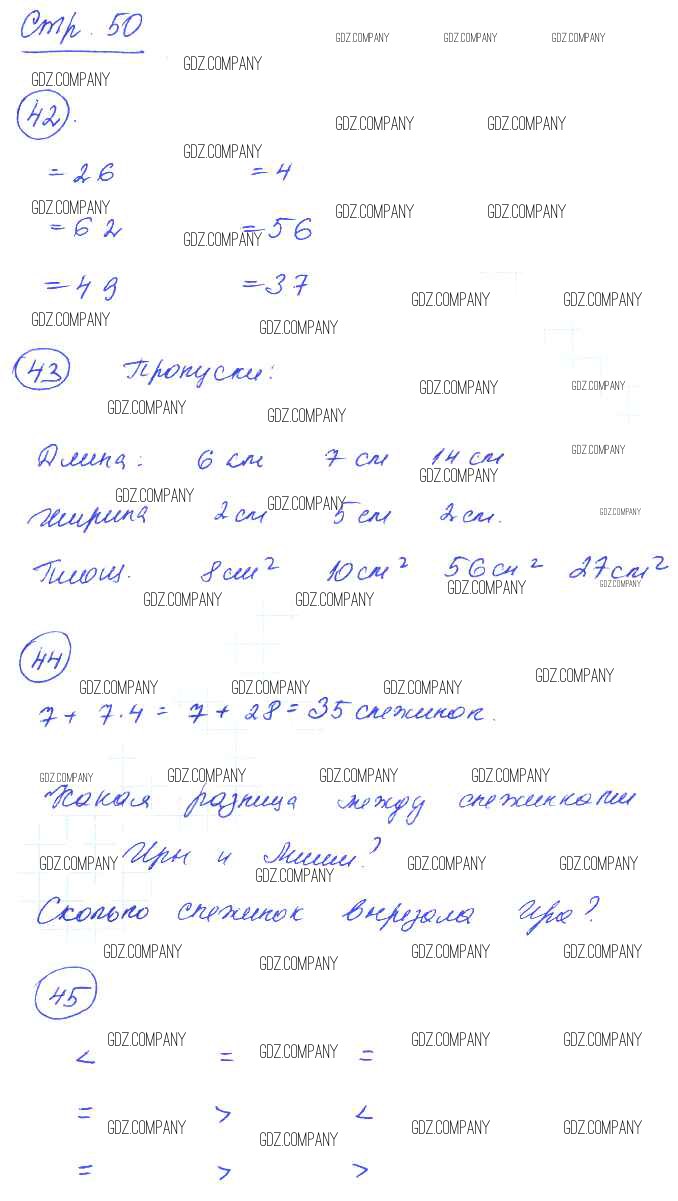 Стр. 50
GDZ.COMPANY GDZ.COMPANY GDZ.COMPANY
GDZ.COMPANY
GDZ.COMPANY
42.
GDZ.COMPANY GDZ.COMPANY
GDZ.COMPANY
= 26 = 4
GDZ.COMPANY GDZ.COMPANY GDZ.COMPANY
= 62 = 56
GDZ.COMPANY
= 49 = 37
GDZ.COMPANY GDZ.COMPANY
GDZ.COMPANY GDZ.COMPANY
43 Пропуски:
GDZ.COMPANY GDZ.COMPANY
GDZ.COMPANY GDZ.COMPANY
Длина: 6 см 7 см 14 см
GDZ.COMPANY
GDZ.COMPANY
GDZ.COMPANY GDZ.COMPANY
ширина 2 см 5 см 2 см.
GDZ.COMPANY
Площ. 8 см² 10 см² 56 см² 27 см²
GDZ.COMPANY GDZ.COMPANY
GDZ.COMPANY GDZ.COMPANY
44
GDZ.COMPANY
GDZ.COMPANY GDZ.COMPANY GDZ.COMPANY
7 + 7·4 = 7 + 28 = 35 снежинок.
GDZ.COMPANY GDZ.COMPANY GDZ.COMPANY GDZ.COMPANY
Какая разница между снежинками
Иры и Миши?
GDZ.COMPANY GDZ.COMPANY GDZ.COMPANY
GDZ.COMPANY
Сколько снежинок вырезала Ира?
GDZ.COMPANY GDZ.COMPANY GDZ.COMPANY
GDZ.COMPANY
45
GDZ.COMPANY GDZ.COMPANY GDZ.COMPANY
GDZ.COMPANY
< = =
= > <
GDZ.COMPANY GDZ.COMPANY GDZ.COMPANY
GDZ.COMPANY
= > >